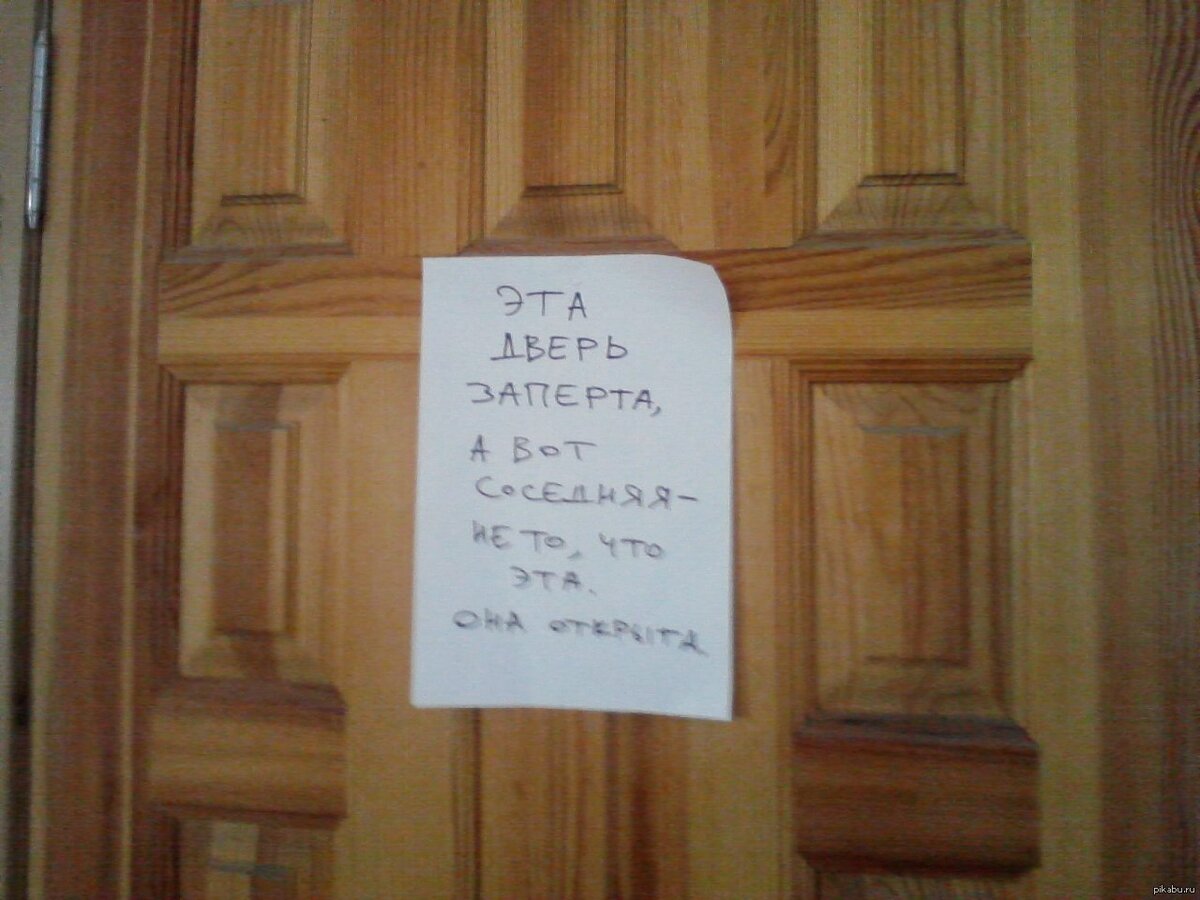 ЭТА
ДВЕРЬ
ЗАПЕРТА,
А ВОТ
СОСЕДНЯЯ-
НЕ ТО, ЧТО
ЭТА.
ОНА ОТКРЫТА
pikabu.ru